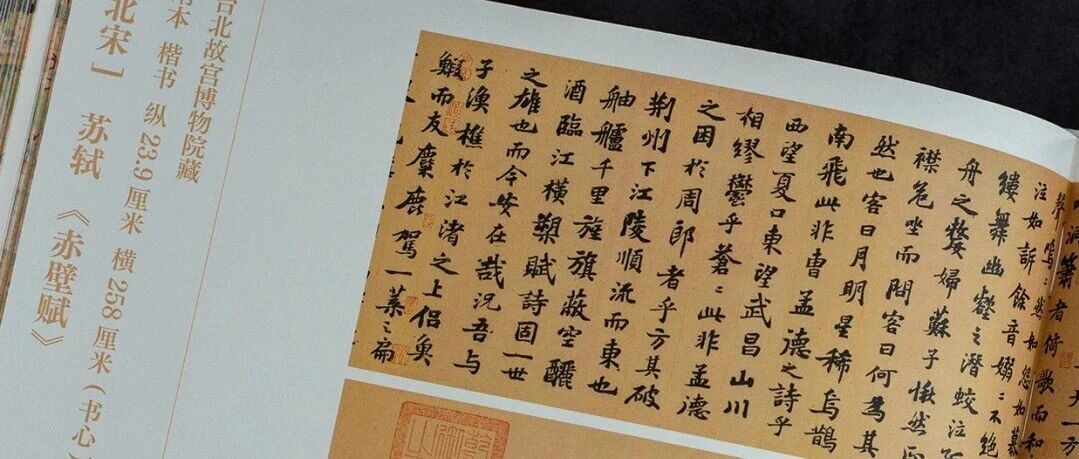 洞簫者倚歌而和
聲嗚〻然如怨如慕
泣如訴餘音嫋〻不絕
縷舞幽壑之潛蛟泣
舟之嫠婦蘇子愀然正
襟危坐而問客曰何為其
然也客曰月明星稀烏鵲
南飛此非曹孟德之詩乎
西望夏口東望武昌山川
相繆鬱乎蒼〻此非孟德
之困於周郎者乎方其破
荊州下江陵順流而東也
舳艫千里旌旗蔽空釃
酒臨江橫槊賦詩固一世
之雄也而今安在哉況吾與
子漁樵於江渚之上侶魚
鰕而友麋鹿駕一葉之扁
台北故宫博物院藏
本 楷书 纵 23.9 厘米 横 258 厘米 ( 书心
北宋 ] 苏轼 《赤壁赋》